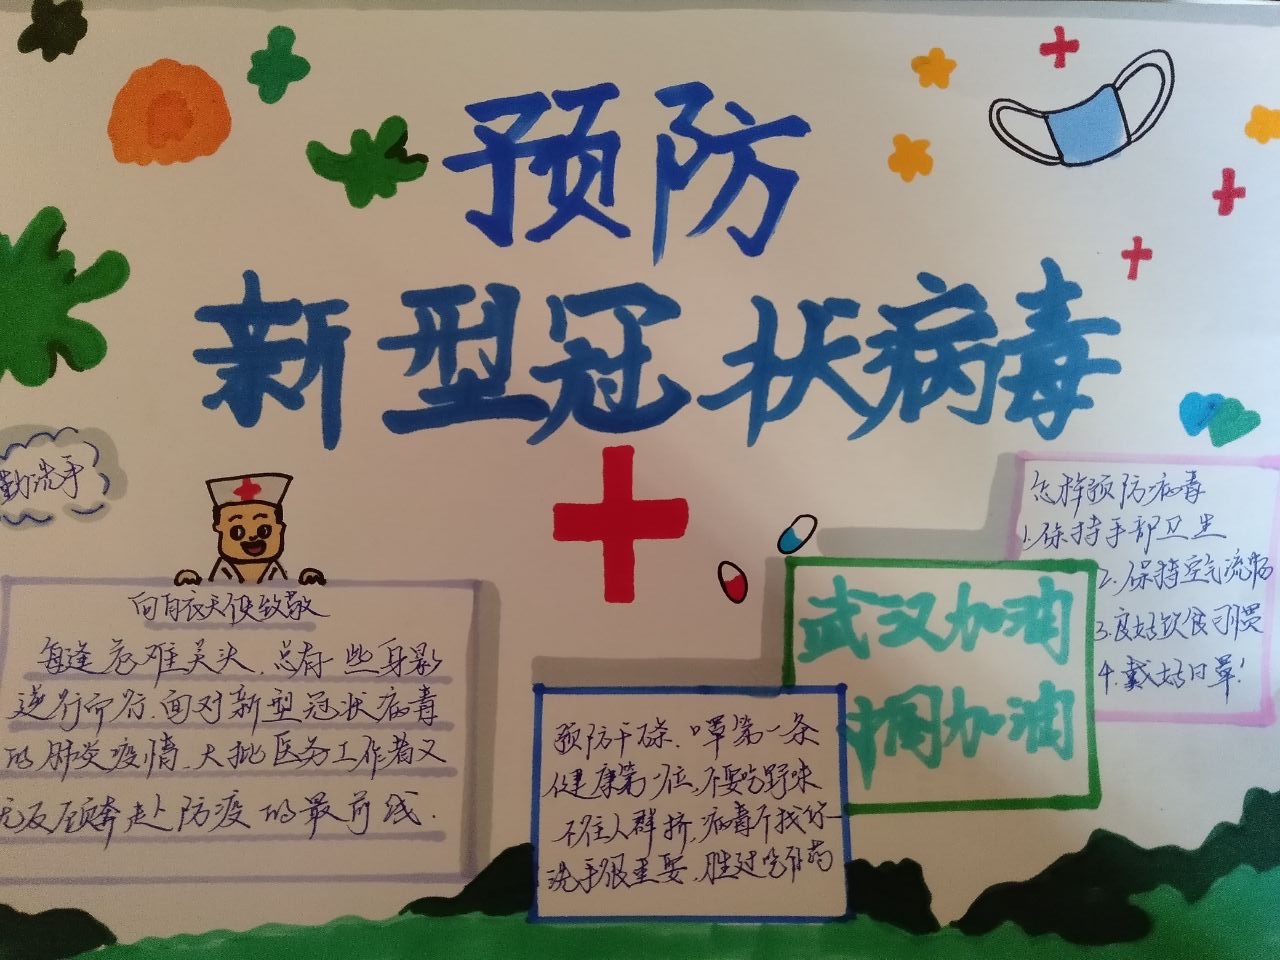 预防
新型冠状病毒
勤洗手
向白衣天使致敬
每逢危难关头,总有一些身影
逆行而行.面对新型冠状病毒
的肺炎疫情,大批医务工作者义
无反顾奔赴防疫的最前线.
预防千条,口罩第一条
健康第一位,不要吃野味
不往人群挤,病毒不找你
洗手很重要,胜过吃补药
武汉加油
中国加油
怎样预防病毒
1.保持手部卫生
2.保持空气流畅
3.良好饮食习惯
4.戴好口罩!